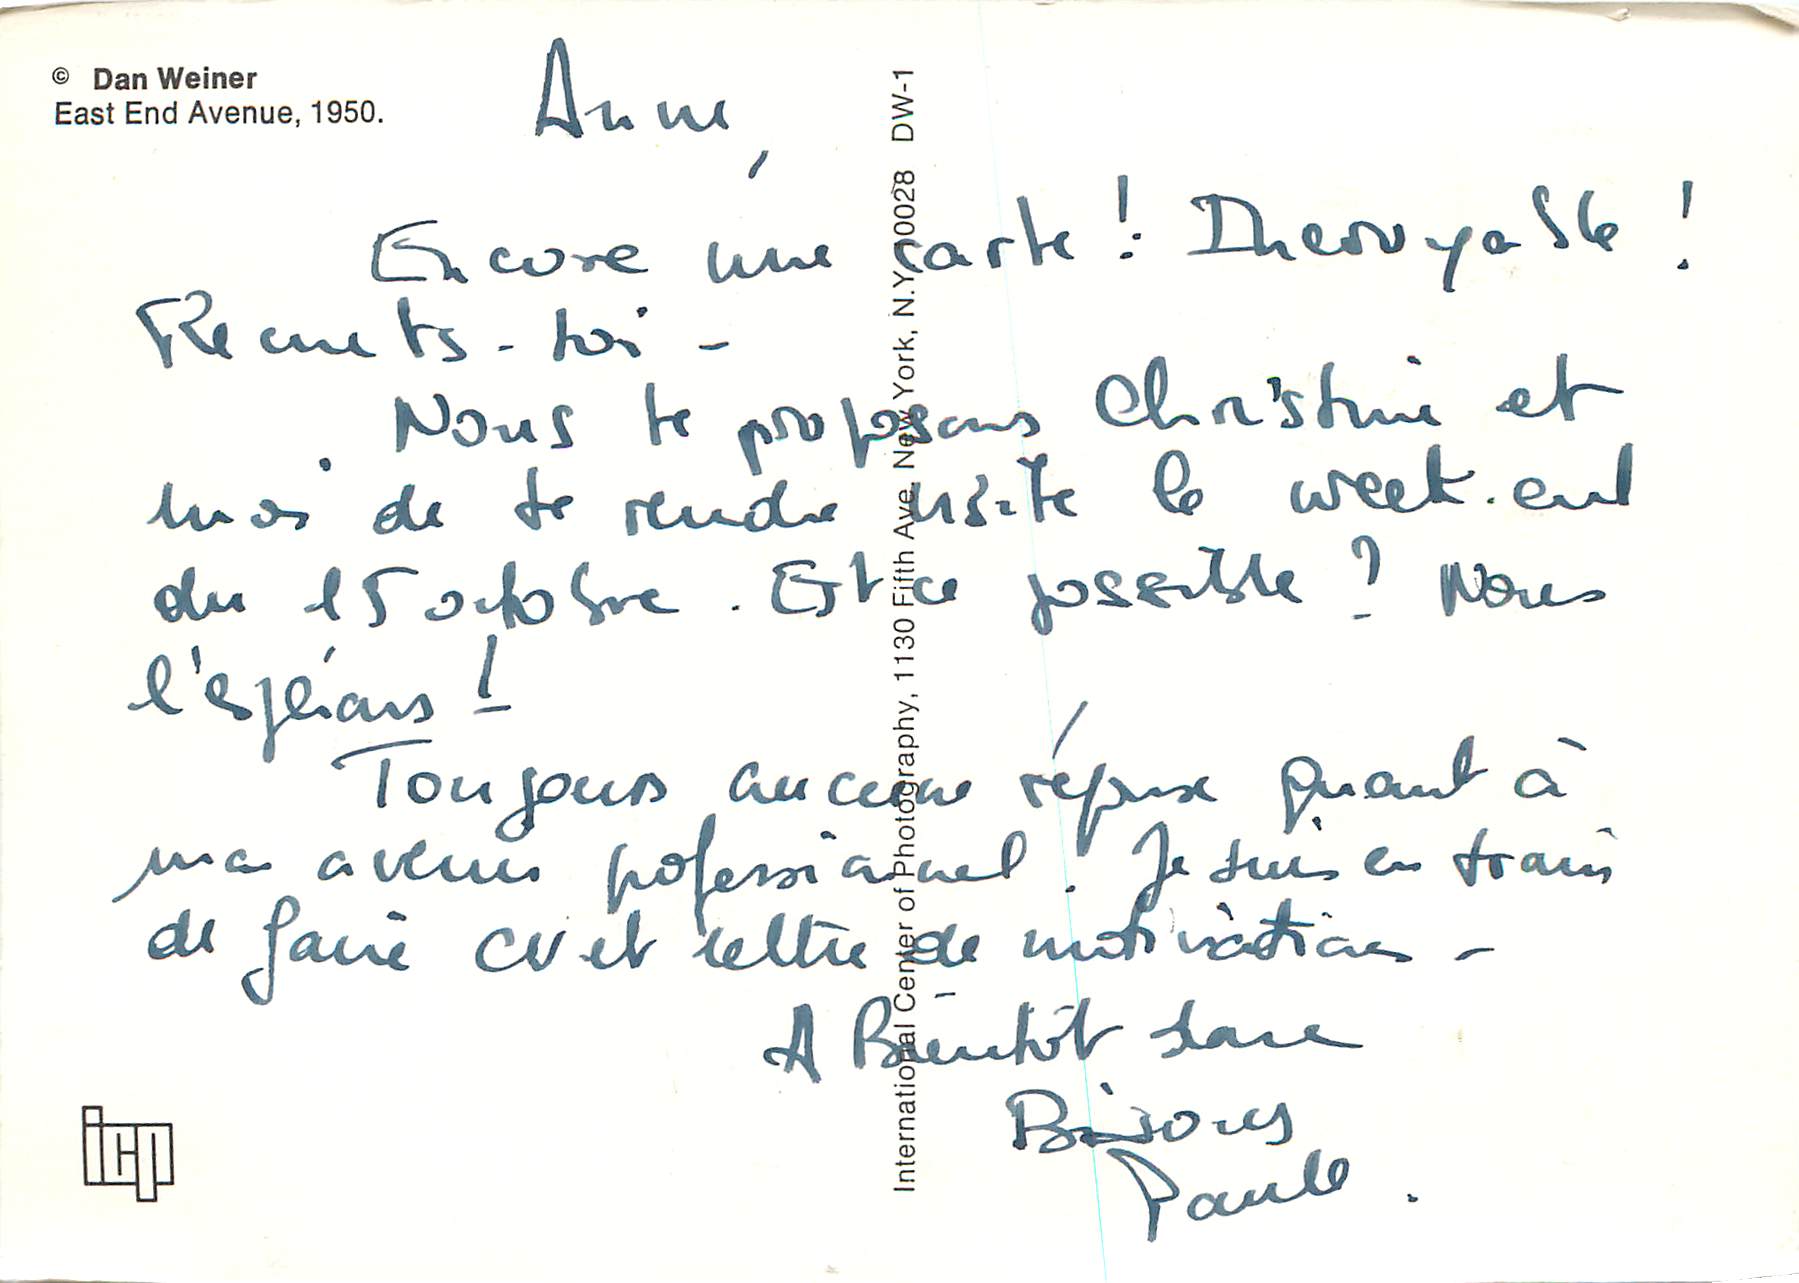 © Dan Weiner
East End Avenue, 1950.
Anne,
Encore une carte ! Incroyable !
Remets-toi -
Nous te proposons Christine et
moi de te rendre visite le week-end
du 15 octobre. Est ce possible ? Nous
l'espérons !
Toujours aucune réponse quant à
mon avenir professionnel. Je suis en train
de faire CV et lettre de motivation -
A Bientôt
Bisous
Paule.
International Center of Photography, 1130 Fifth Ave. New York, N.Y. 10028 DW-1
icp